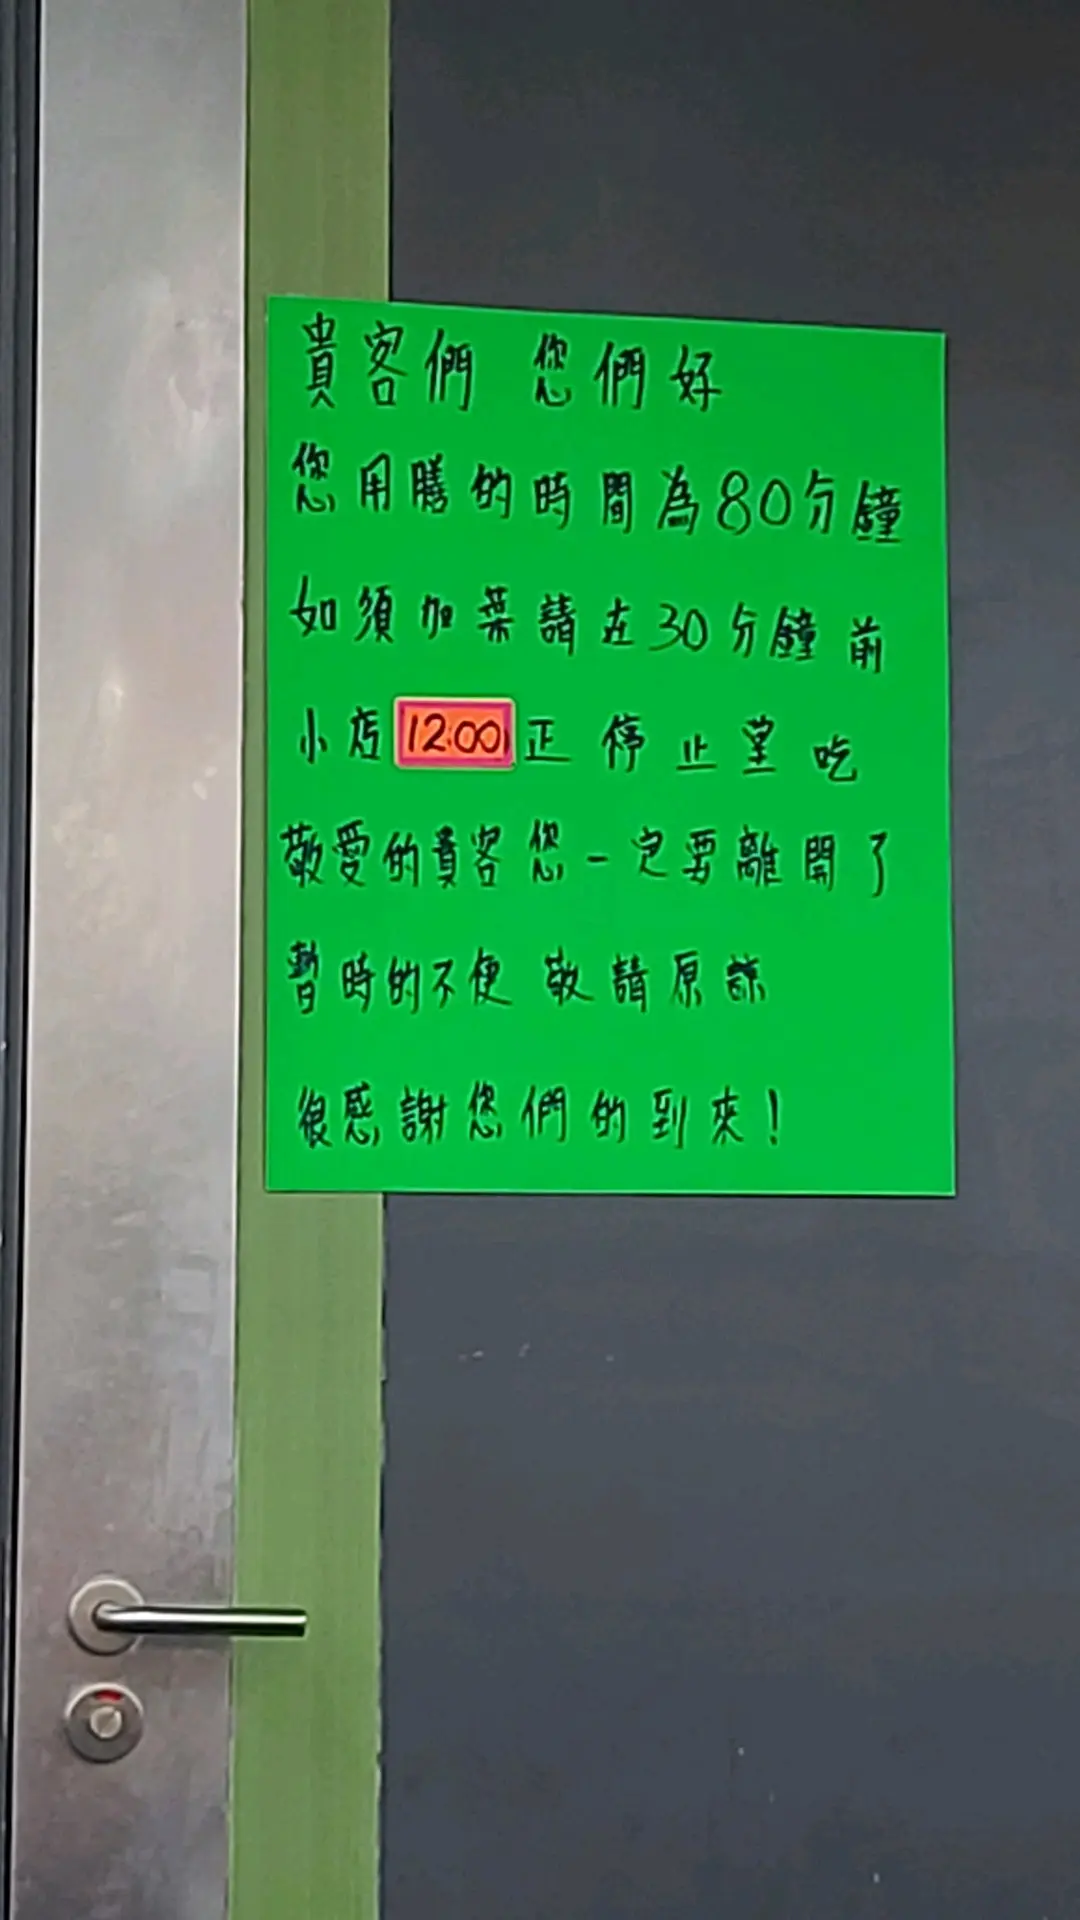 貴客們 您們好
您用膳的時間為80分鐘
如須加菜請在30分鐘前
小店12:00正停止堂吃
敬愛的貴客您一定要離開了
暫時的不便 敬請原諒
很感謝您們的到來！